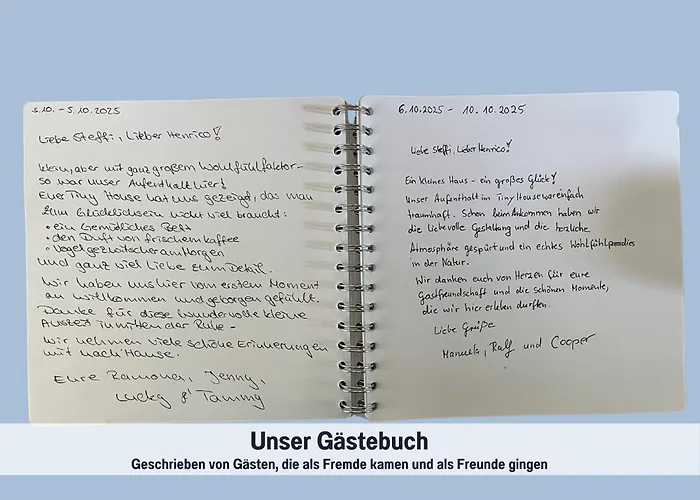 3.10. - 5.10.2025
Liebe Steffi, Lieber Henrico!
klein, aber mit ganz großem Wohlfühlfaktor -
so war unser Aufenthalt hier!
Euer Tiny House hat uns gezeigt, das man
zum Glücklichsein nicht viel braucht:
• ein Gemütliches Bett
• den Duft von frischem Kaffee
• Vogelgezwitscher am Morgen
und ganz viel Liebe zum Detail.
Wir haben uns hier vom ersten Moment
an willkommen und geborgen gefühlt.
Danke für diese wundervolle kleine
Auszeit inmitten der Ruhe -
wir nehmen viele schöne Erinnerungen
mit nach Hause.
Eure Ramona, Jenny,
Lucky & Tammy
6.10.2025 - 10.10.2025
Liebe Steffi, Lieber Henrico!
Ein kleines Haus - ein großes Glück!
Unser Aufenthalt im Tiny House war einfach
traumhaft. Schon beim Ankommen haben wir
die liebevolle Gestaltung und die herzliche
Atmosphäre gespürt und ein echtes Wohlfühlparadies
in der Natur.
Wir danken euch von Herzen für eure
Gastfreundschaft und die schönen Momente,
die wir hier erleben durften.
Liebe Grüße
Manuela, Ralf und Cooper
Unser Gästebuch
Geschrieben von Gästen, die als Fremde kamen und als Freunde gingen